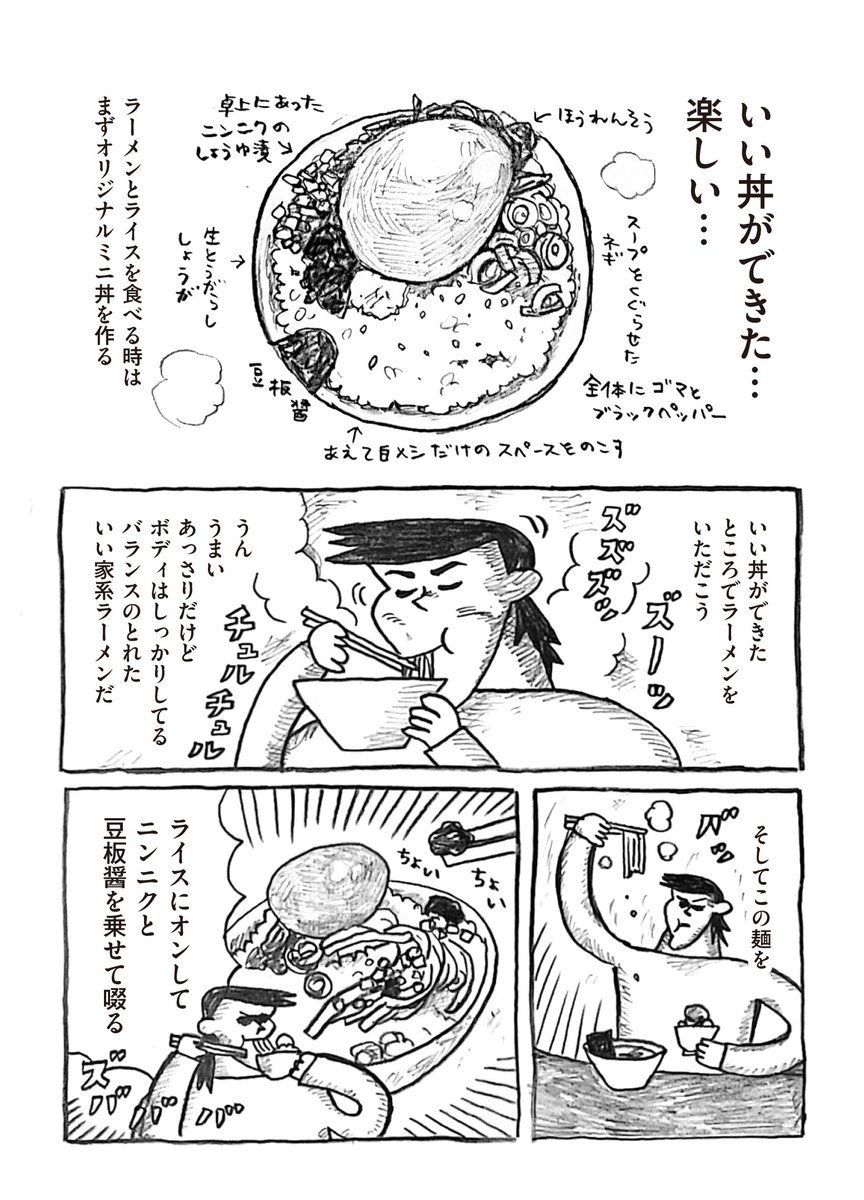 いい丼ができた…
楽しい…
ほうれんそう
スープをくぐらせた
ネギ
全体にゴマと
ブラックペッパー
卓上にあった
ニンニクの
しょうゆ漬
生とうがらし
しょうが
豆板醤
あえて白メシだけのスペースをのこす
ラーメンとライスを食べる時は
まずオリジナルミニ丼を作る
いい丼ができた
ところでラーメンを
いただこう
ズズズッ
ズーッ
チュルチュル
うん
うまい
あっさりだけど
ボディはしっかりしてる
バランスのとれた
いい家系ラーメンだ
そしてこの麺を
バッ
ライスにオンして
ニンニクと
豆板醤を乗せて啜る
ちょい
ちょい
ズババババ